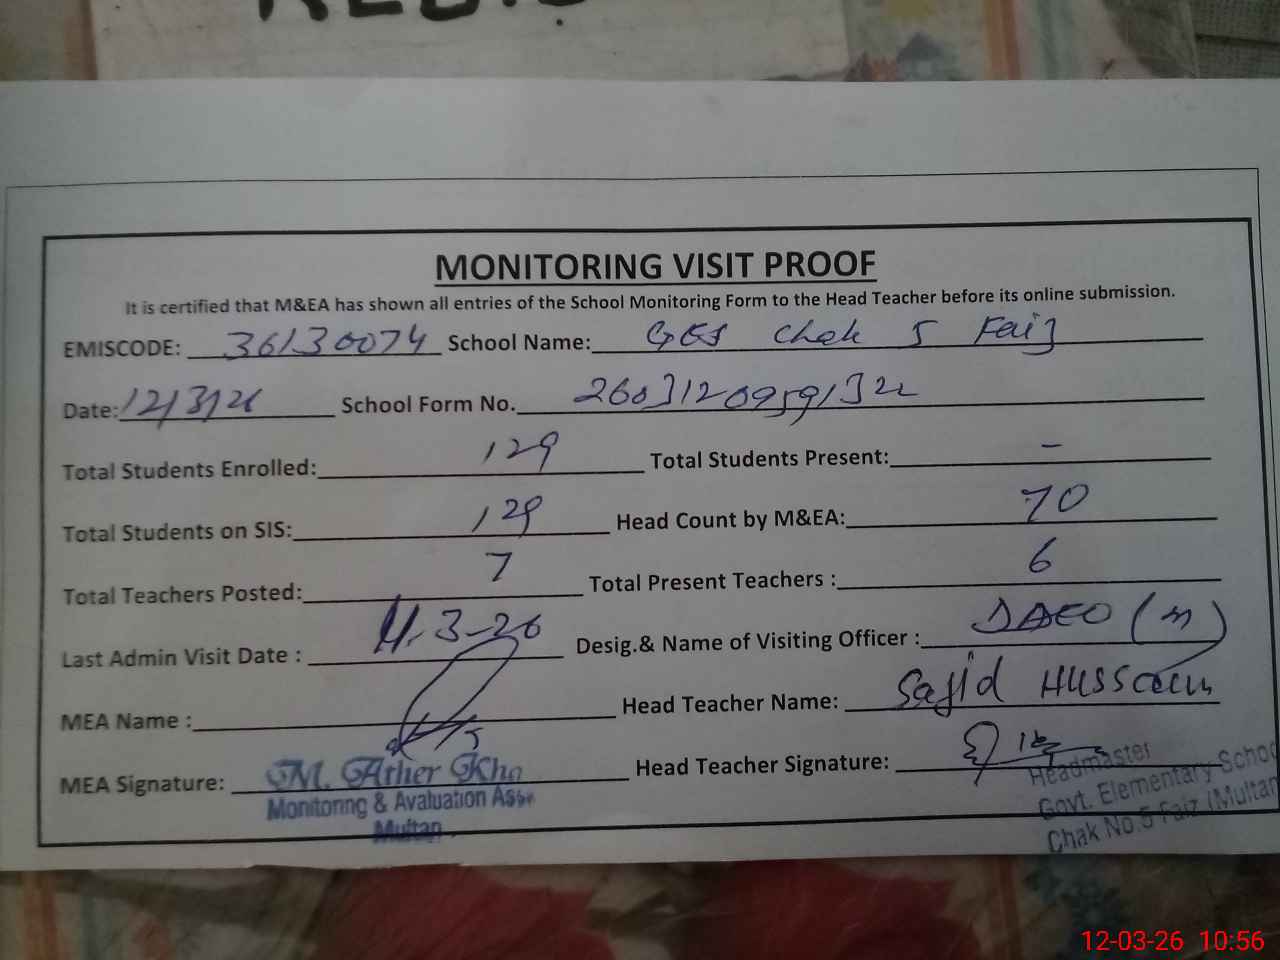 MONITORING VISIT PROOF
It is certified that M&EA has shown all entries of the School Monitoring Form to the Head Teacher before its online submission.
EMISCODE: 36130074 School Name: GES Chak 5 Faiz
Date: 12/3/26 School Form No. 26031209591322
Total Students Enrolled: 129 Total Students Present: -
Total Students on SIS: 129 Head Count by M&EA: 70
Total Teachers Posted: 7 Total Present Teachers : 6
Last Admin Visit Date : 11-3-26 Desig.& Name of Visiting Officer : DAEO (m)
MEA Name : Head Teacher Name: Sajid Hussain
MEA Signature: M. Ather Kha Head Teacher Signature:
Monitoring & Avaluation Asst
Multan
Headmaster
Govt. Elementary School
Chak No.5 Faiz (Multan
12-03-26 10:56